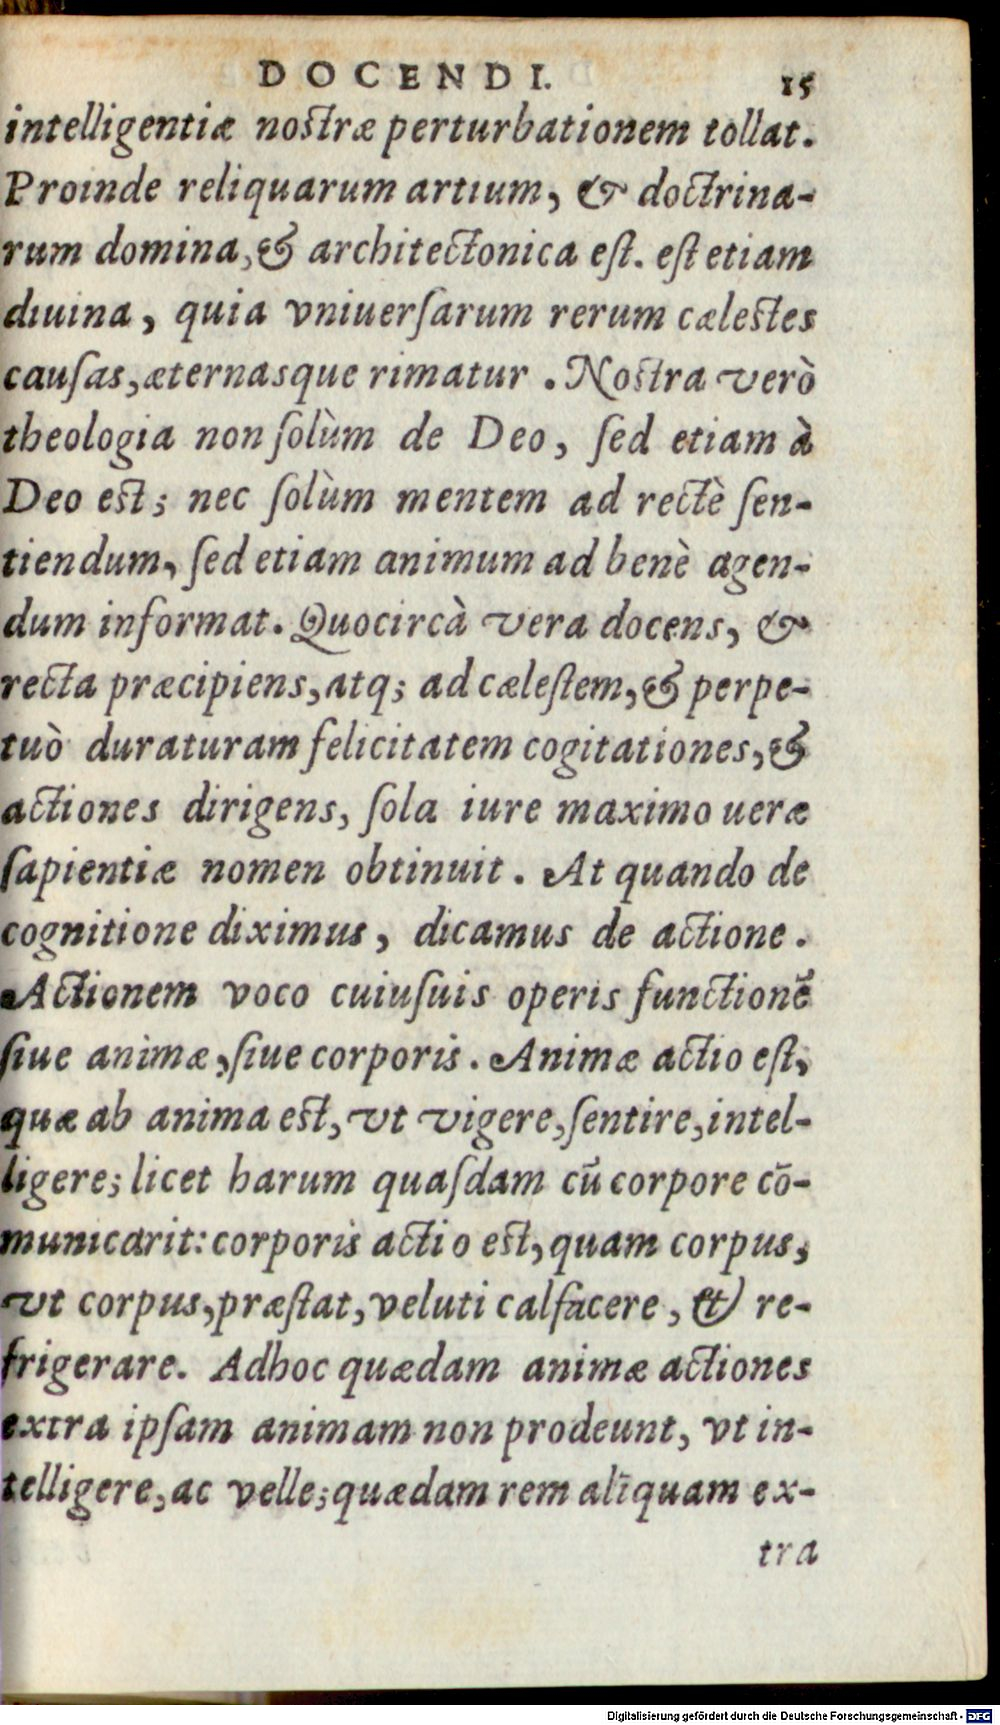 DOCENDI. 15
intelligentiæ nostræ perturbationem tollat.
Proinde reliquarum artium, & doctrina-
rum domina, & architectonica eſt. eſt etiam
diuina, quia vniuerſarum rerum cælestes
cauſas, æternasque rimatur. Nostra verò
theologia non ſolùm de Deo, ſed etiam à
Deo est; nec ſolùm mentem ad rectè ſen-
tiendum, ſed etiam animum ad benè agen-
dum informat. Quocircà vera docens, &
recta præcipiens, atq; ad cæleſtem, & perpe-
tuò duraturam felicitatem cogitationes, &
actiones dirigens, ſola iure maximo ueræ
ſapientiæ nomen obtinuit. At quando de
cognitione diximus, dicamus de actione.
Actionem voco cuiuſuis operis functionē
ſiue animæ, ſiue corporis. Animæ actio eſt,
quæ ab anima est, vt vigere, ſentire, intel-
ligere; licet harum quaſdam cū corpore cō-
municarit: corporis actio est, quam corpus,
vt corpus, præſtat, veluti calfacere, & re-
frigerare. Adhoc quædam animæ actiones
extra ipſam animam non prodeunt, vt in-
telligere, ac velle; quædam rem aliquam ex-
tra
Digitalisierung gefördert durch die Deutsche Forschungsgemeinschaft - DFG